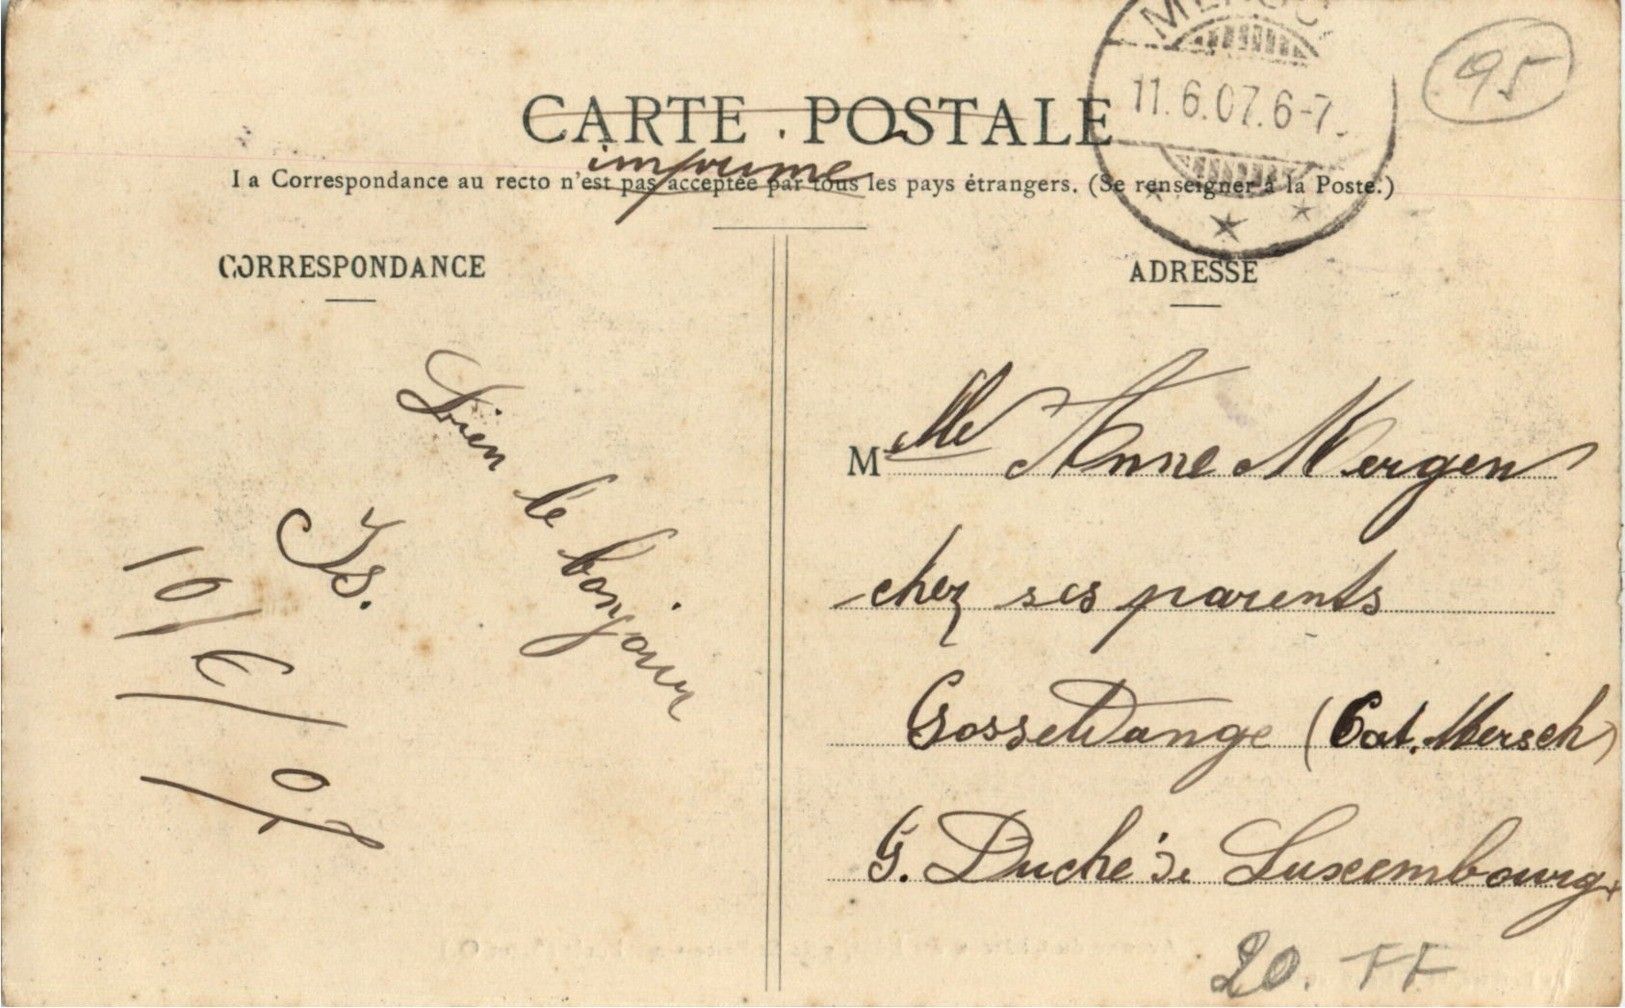 MERSCH
11.6.07.6-7
95
CARTE POSTALE
imprimé
La Correspondance au recto n'est pas acceptée par tous les pays étrangers. (Se renseigner à la Poste.)
CORRESPONDANCE
Bien le bonjour
Js.
10/6/07
ADRESSE
Mlle Anne Mergen
chez ses parents
Gosseldange (Cat. Mersch)
G. Duché de Luxembourg
20. FF